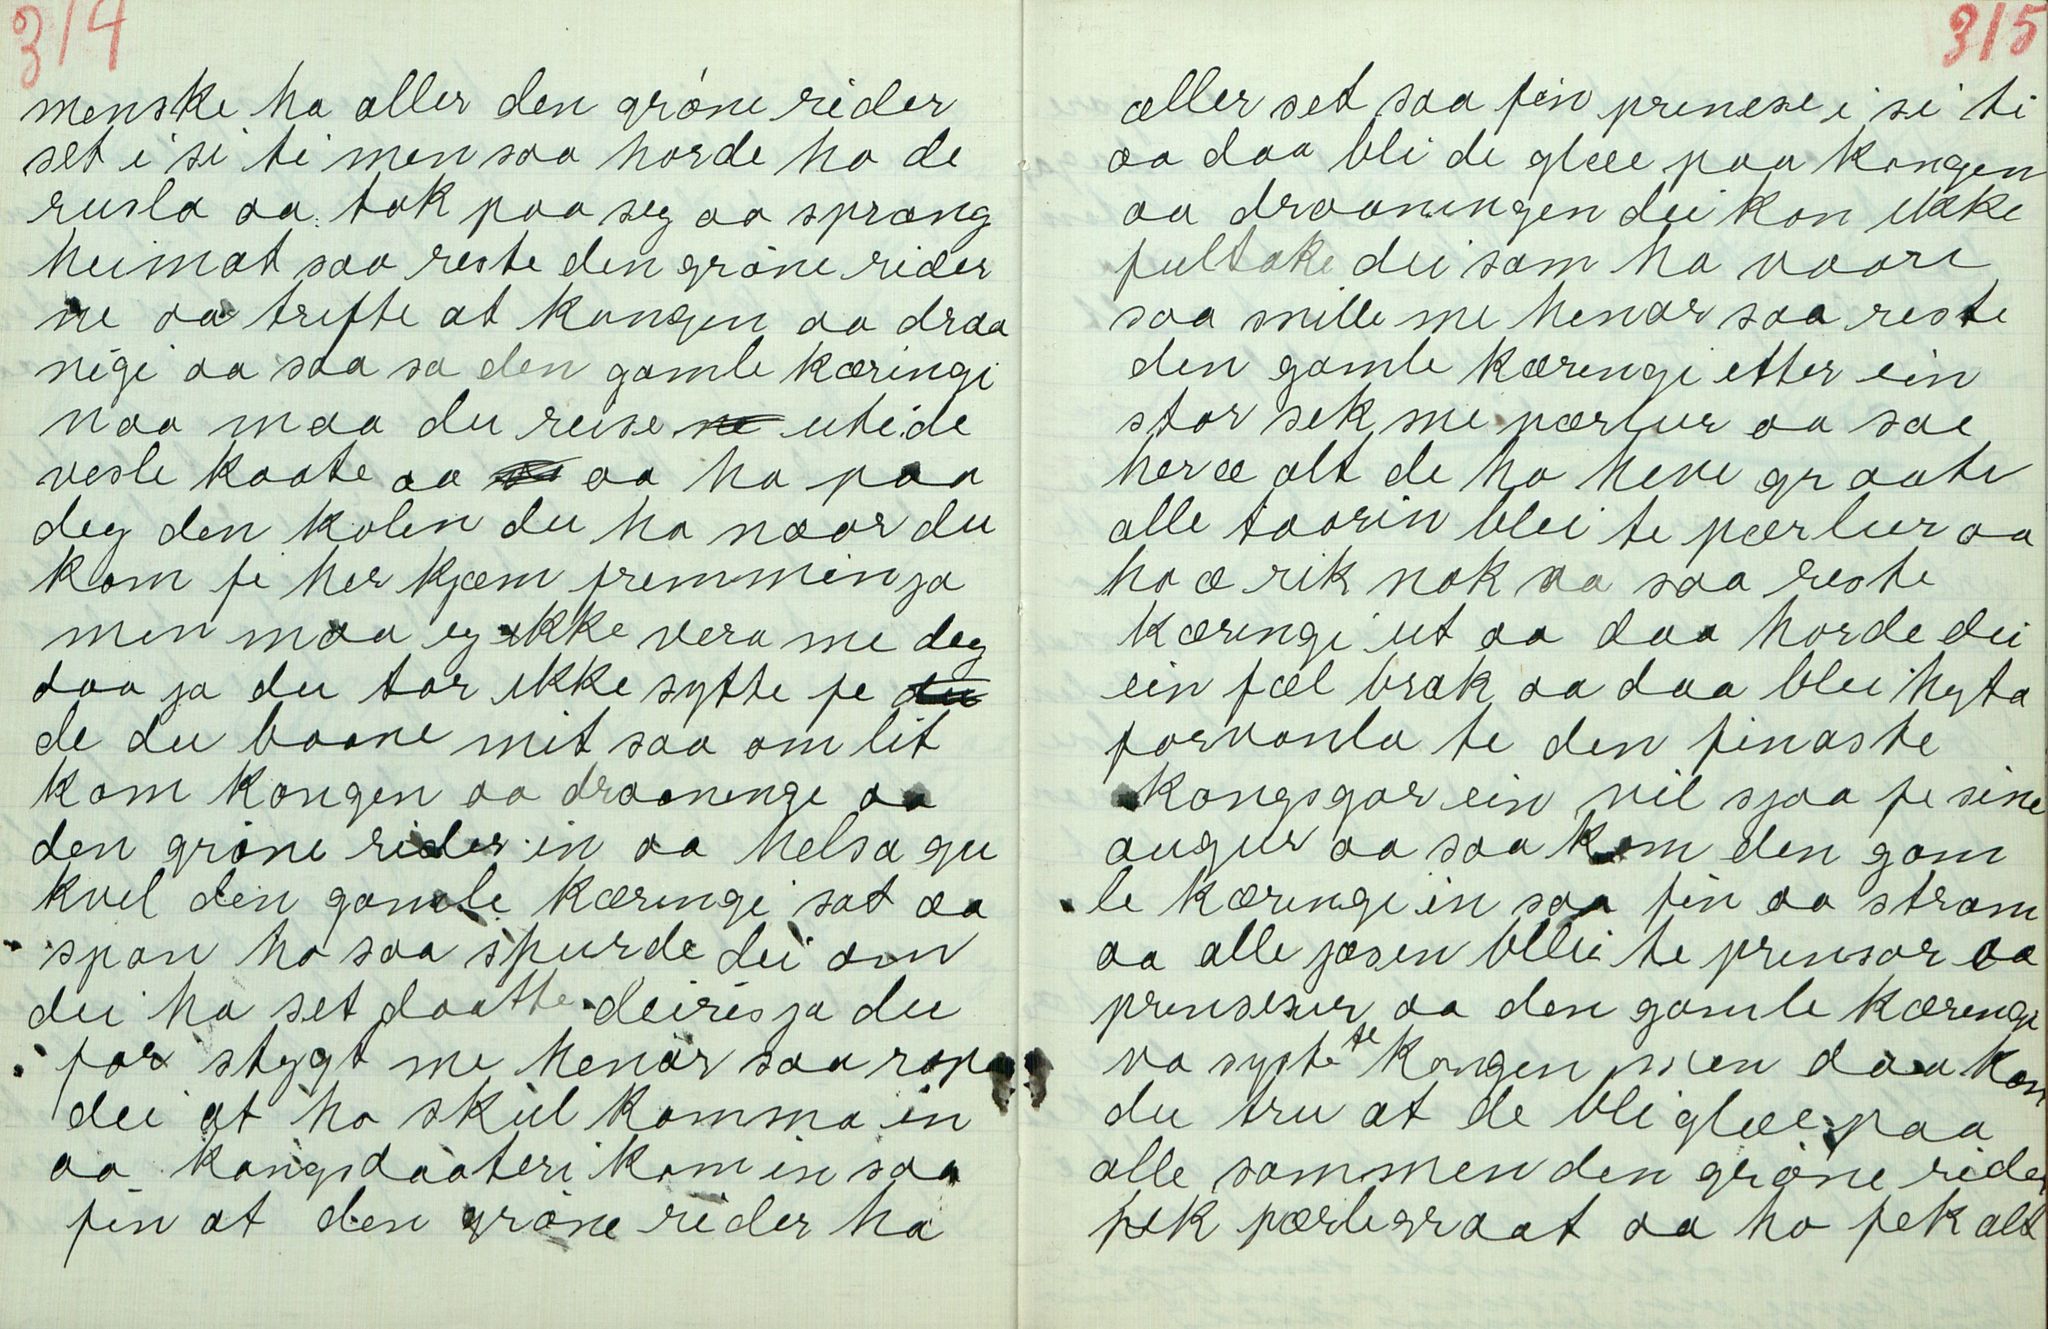 314
menske ha aller den gróne rider
set i si ti men saa horde ho de
rusla aa tok paa seg aa sprang
heimat saa reste den gróne rider
ne aa trefte at kongen aa draa
nigi aa saa sa den gamle kæringi
naa maa du reise uti de
vesle kaate aa aa ha paa
deg den kolen du ha naar du
kom fe her kjæm fremmin ja
men maa eg ikke vera me deg
daa ja du tar ikke sytte fe
de du baane mit saa om lit
kom kongen aa draaninge aa
den gróne rider in aa helsa gu
kvel den gamle kæringi sat aa
span ho saa spurde dei om
dei ha set daatte deiris ja du
for stygt me henar saa ropa
dei at ho skul komma in
aa kongsdaateri kom in saa
fin at den gróne rider ha
315
æller set saa fin prinese i si ti
aa daa bli de glæe paa kongen
aa draaningen dei kon ikke
fultake dei som ha vaare
saa snille me henar saa reste
den gamle kæringi etter ein
stor sek me pærlur aa sae
her æ alt de ho heve graate
alle taarin blei te pærlur aa
ho æ rik nok aa saa reste
kæringi ut aa daa horde dei
ein fæl brak aa daa blei hyta
forvanla te den finaste
kongsgar ein vil sjaa fe sine
augur aa saa kom den gam
le kæringi in saa fin aa stram
aa alle jæsen bllei te prinsar aa
prinsesur aa den gamle kæringi
va syste te kongen men daa kan
du tru at de bli glæe paa
alle sammen den gróne rider
fek pærlegraat aa ho fek alt